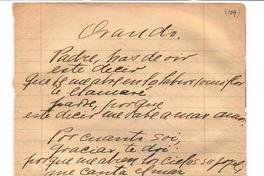 (104)
Orando.
Padre, has de oir
este decir
que se me abre en los labios como flor
te llamaré
padre, porque
este decir me sabe a mar amor
Por cuanto soi
gracias te doi:
porque me abren los cielos su
me canta el mar